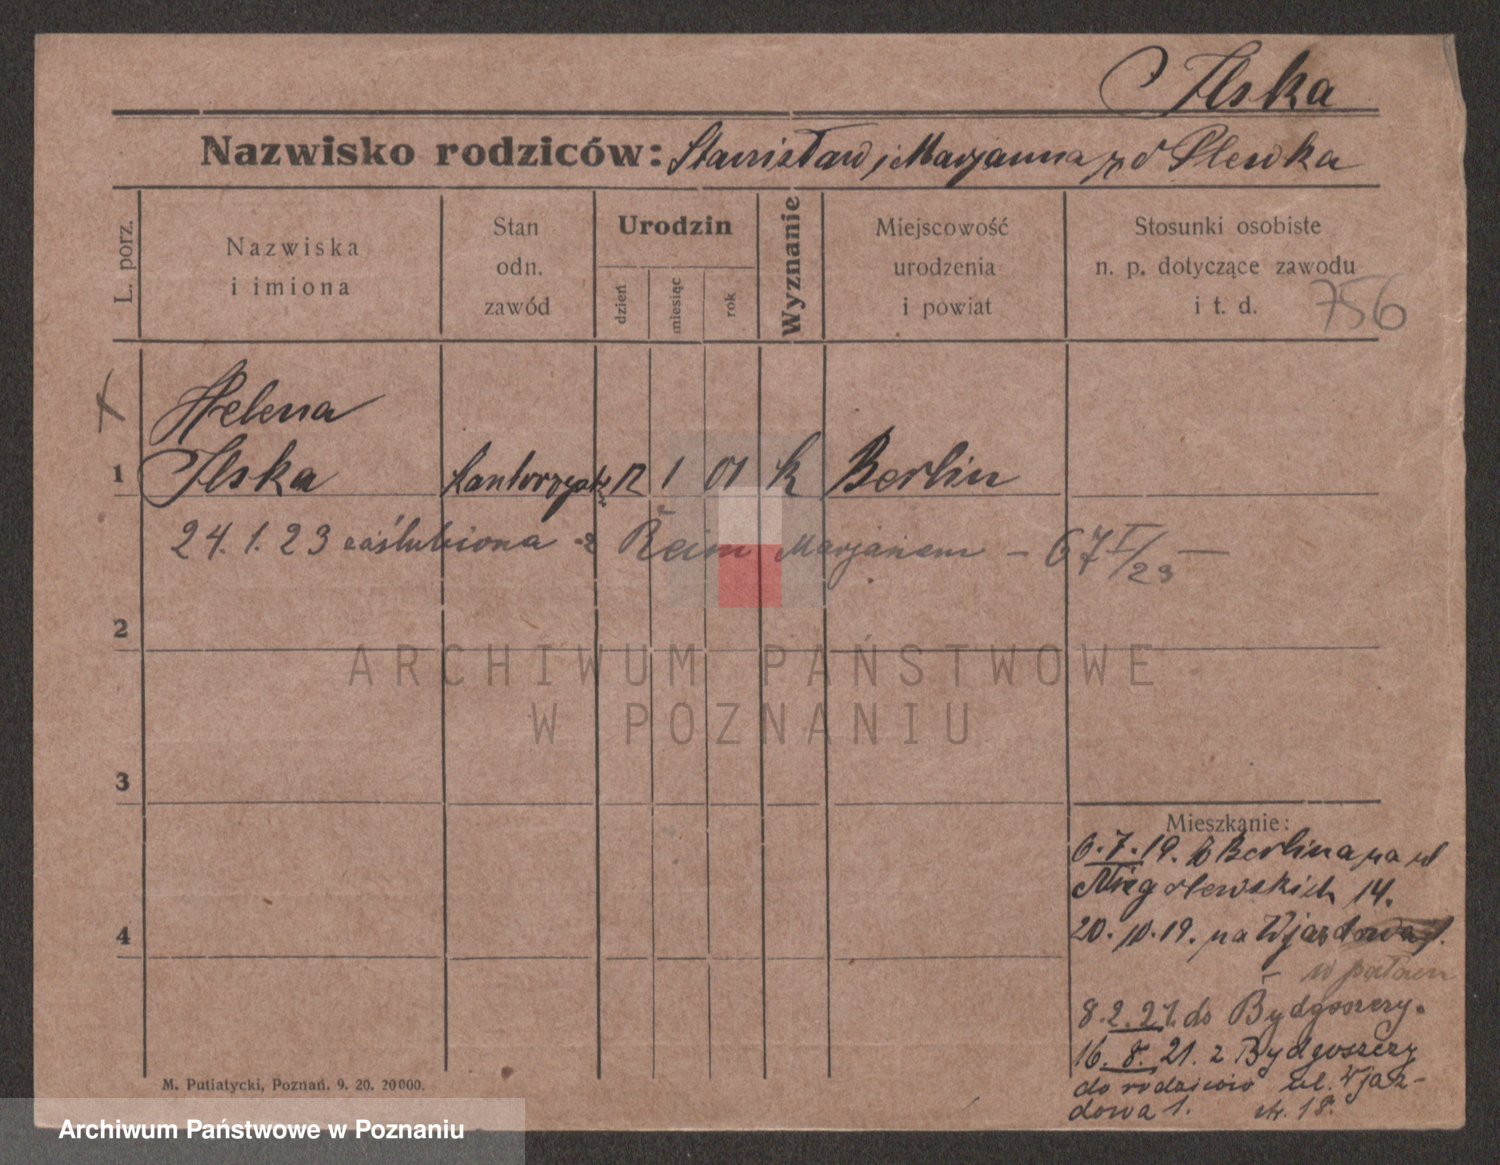 Ilska
Nazwisko rodziców: Stanisław i Marjanna z d Plewka
L. porz.
Nazwiska
i imiona
Stan
odn.
zawód
Urodzin
dzień
miesiąc
rok
Wyznanie
Miejscowość
urodzenia
i powiat
Stosunki osobiste
n. p. dotyczące zawodu
i t. d.
756
Helena
1 Ilska kantorzystk 12 1 01 k Berlin
24. 1. 23 zaślubiona z Reim Marjanem – 67 I/23 –
2
ARCHIWUM PAŃSTWOWE
W POZNANIU
3
4
Mieszkanie:
6.7.19. z Berlina na ul
Niegolewskich 14.
20.10.19. na Wjazdowa 1.
w pałacu
8.2.21. do Bydgoszczy.
16.8.21. z Bydgoszczy
do rodziców ul. Wjaz-
dowa 1. str. 18.
M. Putiatycki, Poznań. 9. 20. 20000.
Archiwum Państwowe w Poznaniu